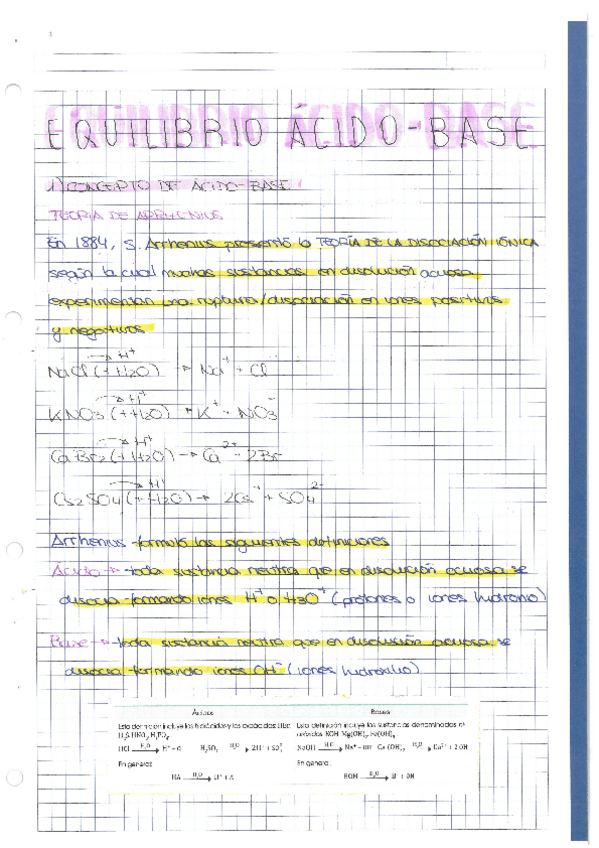 EQUILIBRIO ÁCIDO-BASE
1) CONCEPTO DE ÁCIDO-BASE
TEORÍA DE ARRHENIUS
En 1884, S. Arrhenius presentó la TEORÍA DE LA DISOCIACIÓN IÓNICA
según la cual muchas sustancias en disolución acuosa
experimentan una ruptura/disociación en iones positivos
y negativos
→ H+
NaCl (+H2O) → Na+ + Cl
→ H+
KNO3 (+H2O) → K+ + NO3-
→ H+
CaBr2 (+H2O) → Ca2+ + 2Br
→ H+
Cs2SO4 (+H2O) → 2Cs+ + SO4 2-
Arrhenius formuló las siguientes definiciones
Ácido → toda sustancia neutra que en disolución acuosa se
disocia formando iones H+ o H3O+ (protones o iones hidronio)
Base → toda sustancia neutra que en disolución acuosa se
disocia formando iones OH- (iones hidroxilo)
Ácidos Bases
Esta definición incluye los hidrácidos y los oxácidos: Esta definición incluye las sustancias denominadas
H2S, HNO3, H3PO4 KOH, Mg(OH)2, Fe(OH)3
HCl H2O → H+ + Cl H2SO4 H2O → 2H+ + SO4 NaOH H2O → Na+ + OH Ca(OH)2 H2O → Ca2+ + 2OH
En general: En general:
HA H2O → H+ + A BOH H2O → B+ + OH